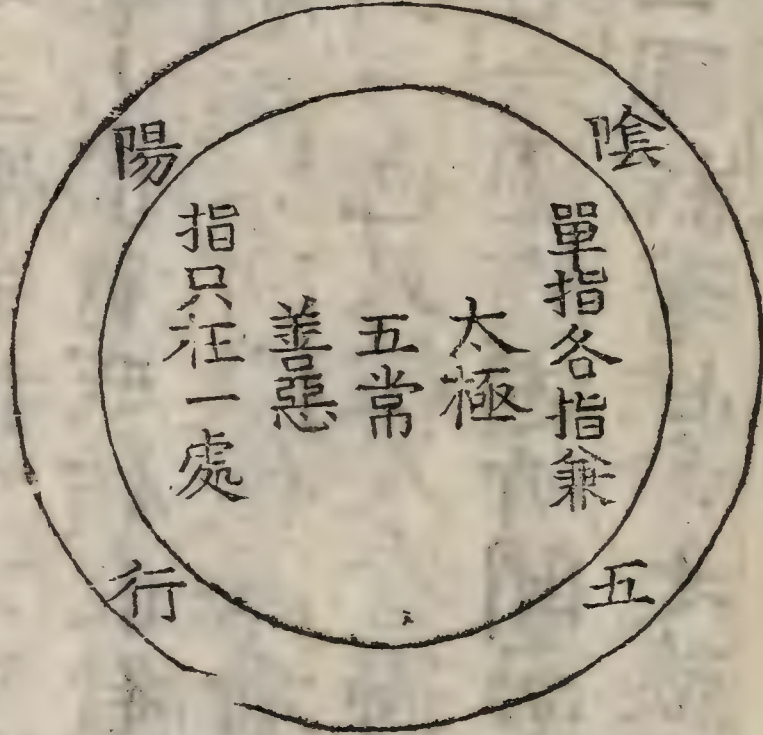 陰
陽
五
行
單指各指兼
太極
五常
善惡
指只在一處